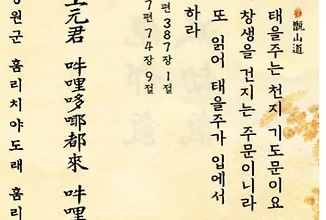 觀山道
태을주는 천지 기도문이요
창생을 건지는 주문이니라
또 읽어 태을주가 입에서
하라
편 387장 1절
7편 74장 9절
元君 吽哩哆㖿都來 吽哩
원군 훔리치야도래 훔리